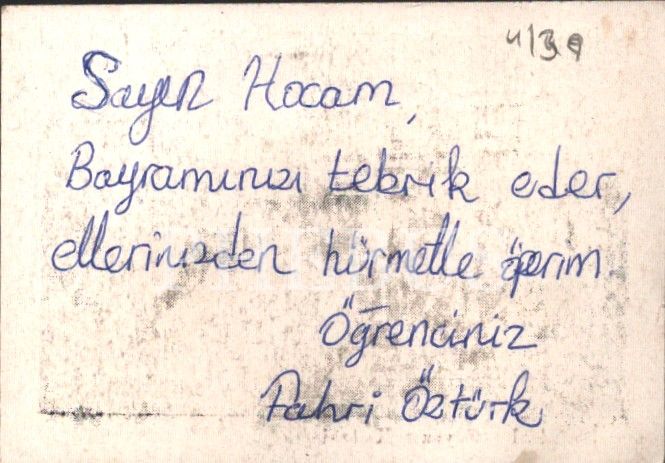 4/39
Sayın Hocam,
Bayramınızı tebrik eder,
ellerinizden hürmetle öperim.
Öğrenciniz
Fahri Öztürk